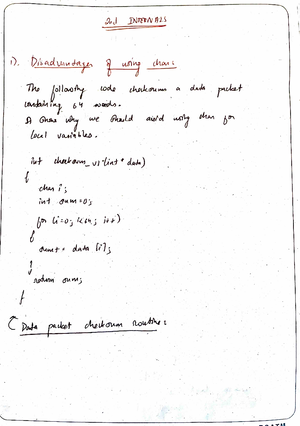 2nd INTERNALS
1). Disadvantages of using chars
The following code checksums a data packet
containing 64 words.
It shows why we should avoid using char for
local variables.
int checksum_v1(int * data)
{
char i;
int sum=0;
for (i=0; i<64; i++)
{
sum+= data [i];
}
return sum;
}
Data packet checksum routine: